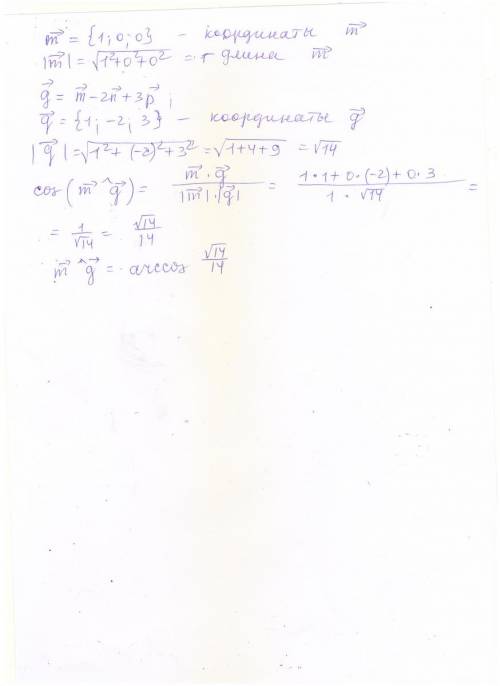 m⃗ = {1; 0; 0} - координаты m⃗
|m⃗| = √1²+0²+0² = 1 длина m⃗
g⃗ = m⃗ - 2n⃗ + 3p⃗ ;
g⃗ = {1; -2; 3} - координаты g⃗
|g⃗| = √1²+(-2)²+3² = √1+4+9 = √14
cos (m⃗ ^ g⃗) = m⃗ · g⃗ / |m⃗|·|g⃗| = 1·1+0·(-2)+0·3 / 1·√14 =
= 1/√14 = √14/14
m⃗ ^ g⃗ = arccos √14/14